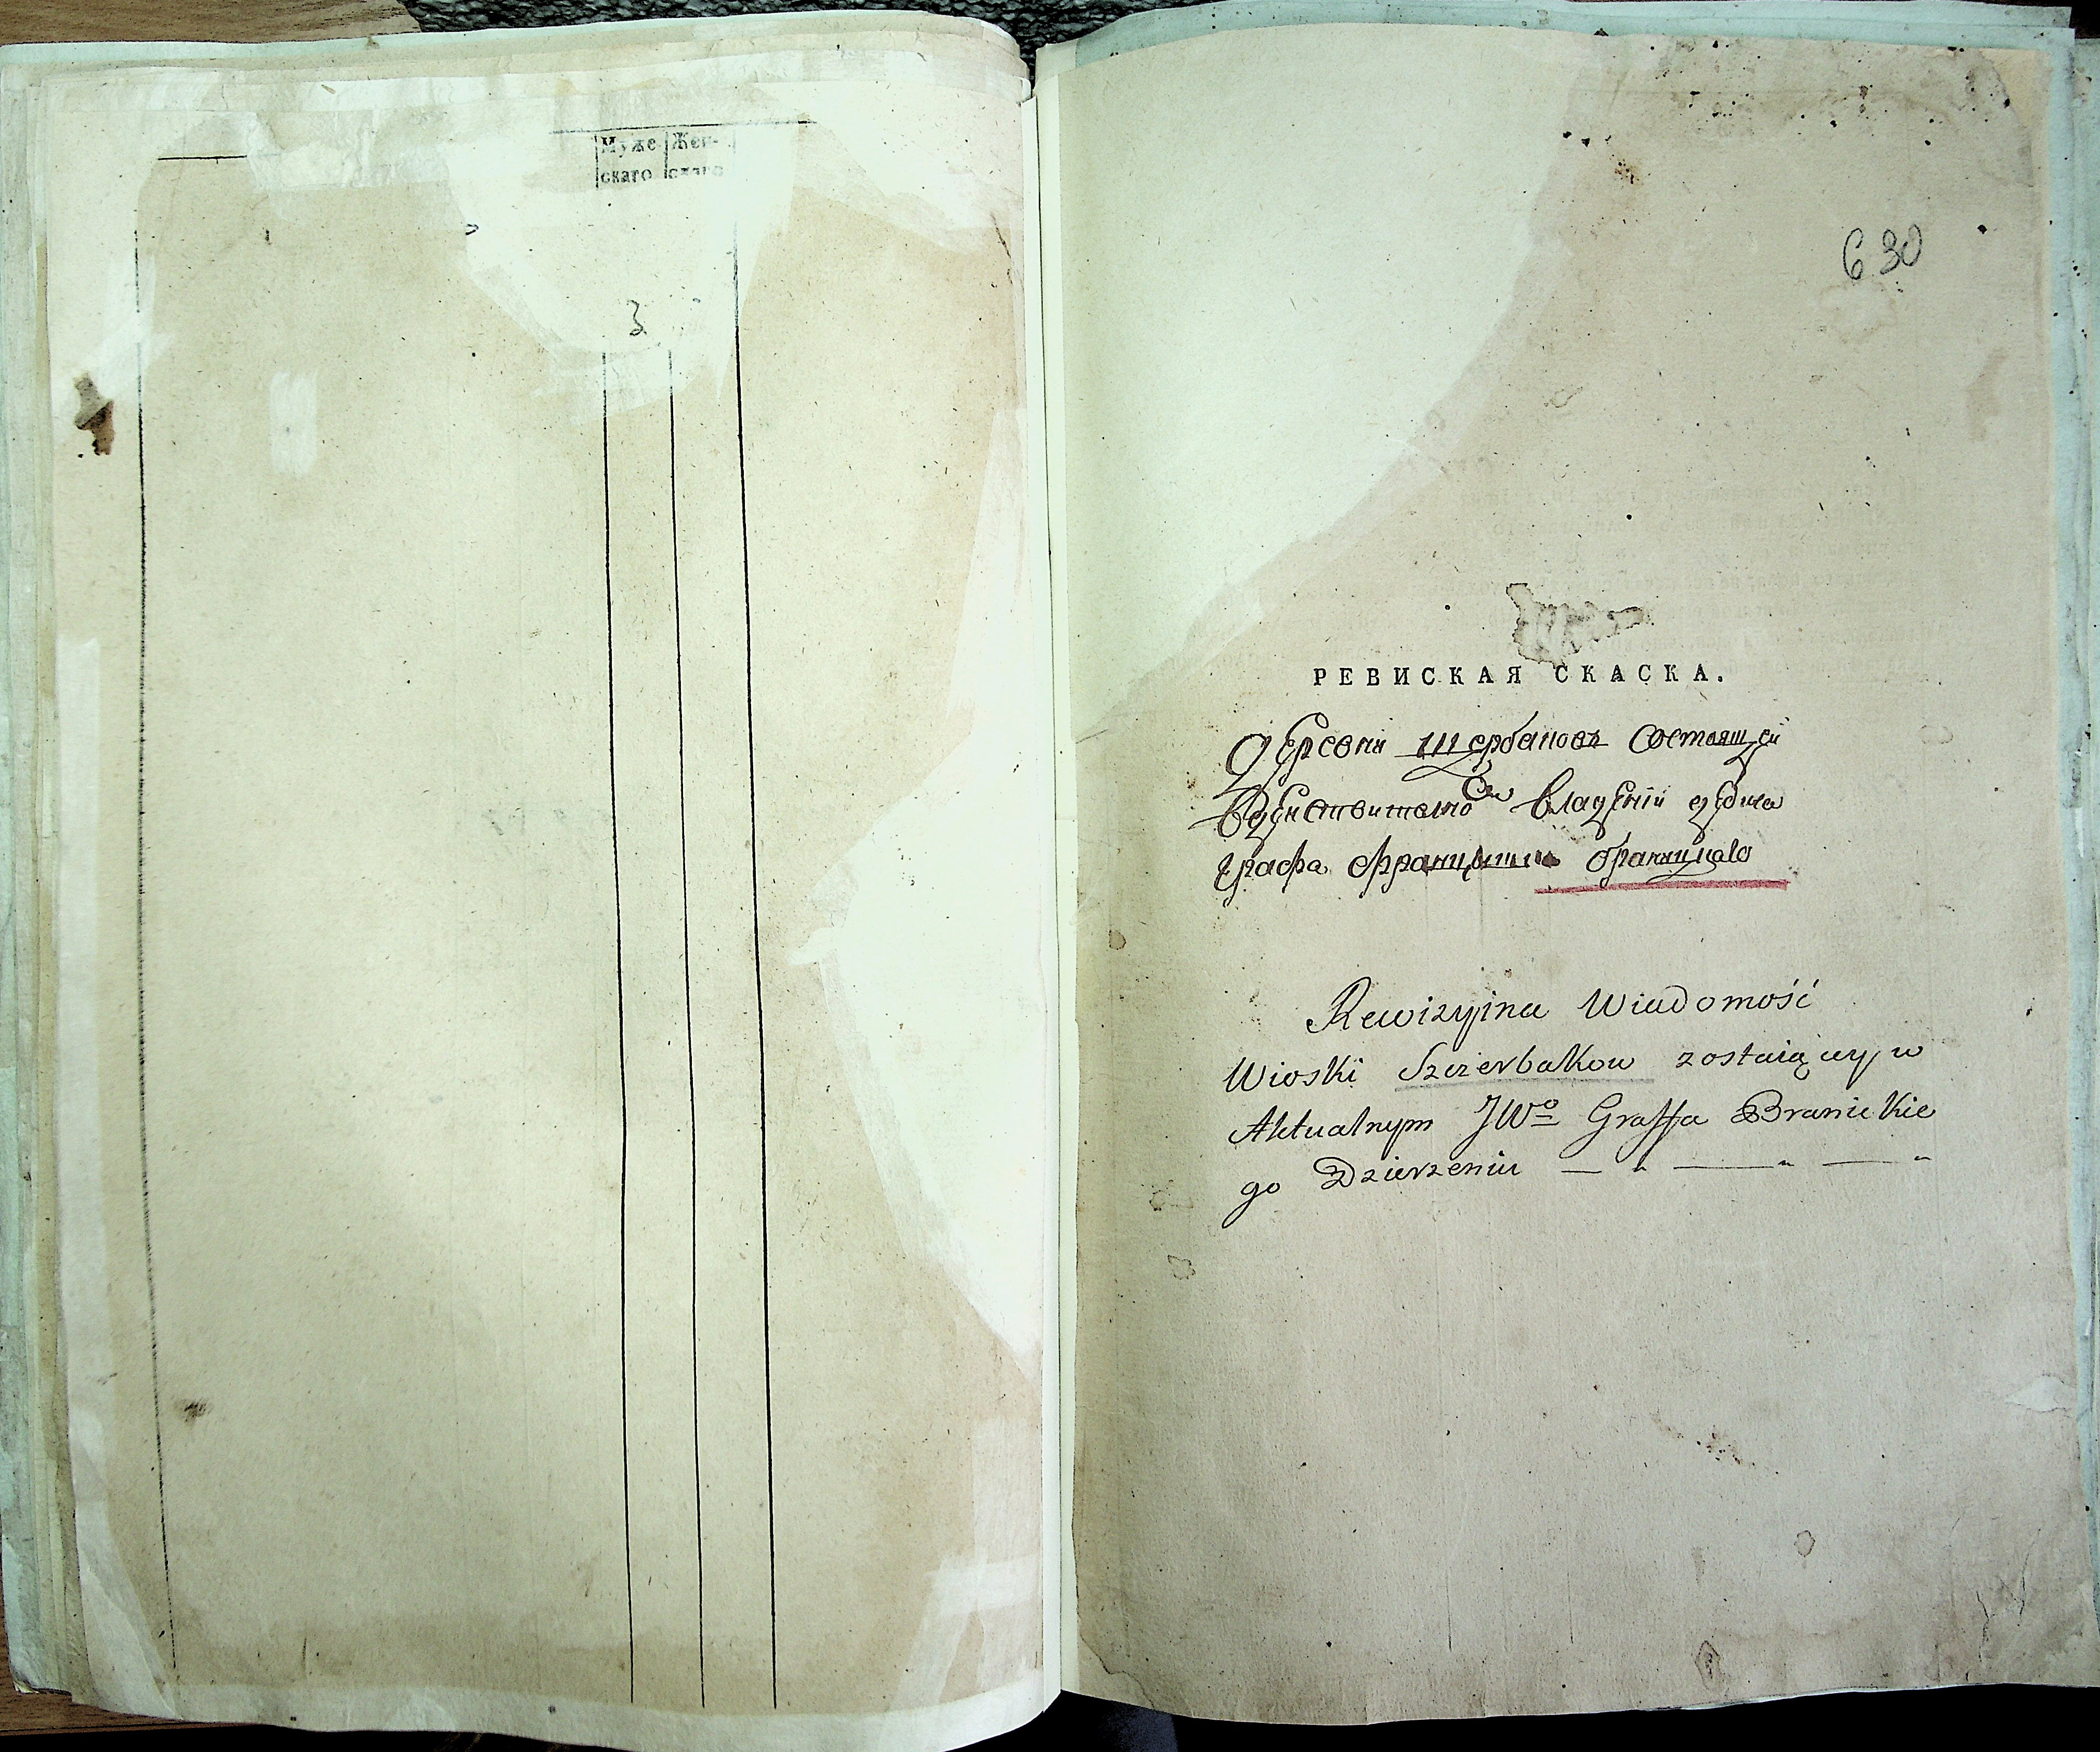 Муже Жен-
скаго скаго
3
630
РЕВИСКАЯ СКАСКА.
деревни щербаковъ состоящей
вдействително См владении
графа браницкаго
Rewizyjna Wiadomość
Wioski Szczerbakow zostaiącey w
Aktualnym JWo Graffa Branickie
go Dzierzeniu — „ — „ — „